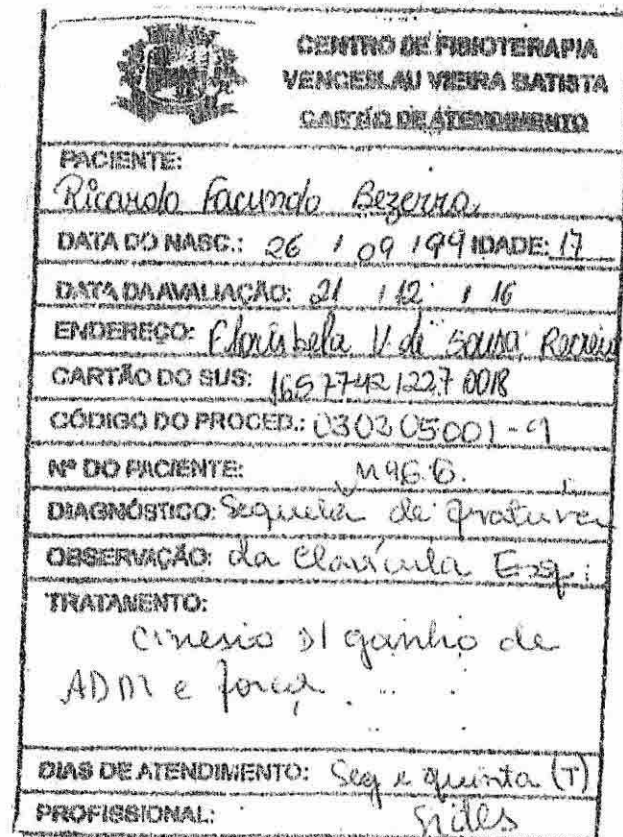 CENTRO DE FISIOTERAPIA
VENCESLAU VIEIRA BATISTA
CARTÃO DE ATENDIMENTO
PACIENTE:
Ricardo Facundo Bezerra
DATA DO NASC.: 26 / 09 / 99 IDADE: 17
DATA DA AVALIAÇÃO: 21 / 12 / 16
ENDEREÇO: Florisbela V. de Sousa Recreio
CARTÃO DO SUS: 165 7742 1227 0018
CÓDIGO DO PROCED.:
Nº DO PACIENTE:
DIAGNÓSTICO: Sequela de fratura
OBSERVAÇÃO: da Clavícula Esq.
TRATAMENTO:
Cinesio p/ ganho de
ADM e força
DIAS DE ATENDIMENTO: Seg e quinta (T)
PROFISSIONAL: